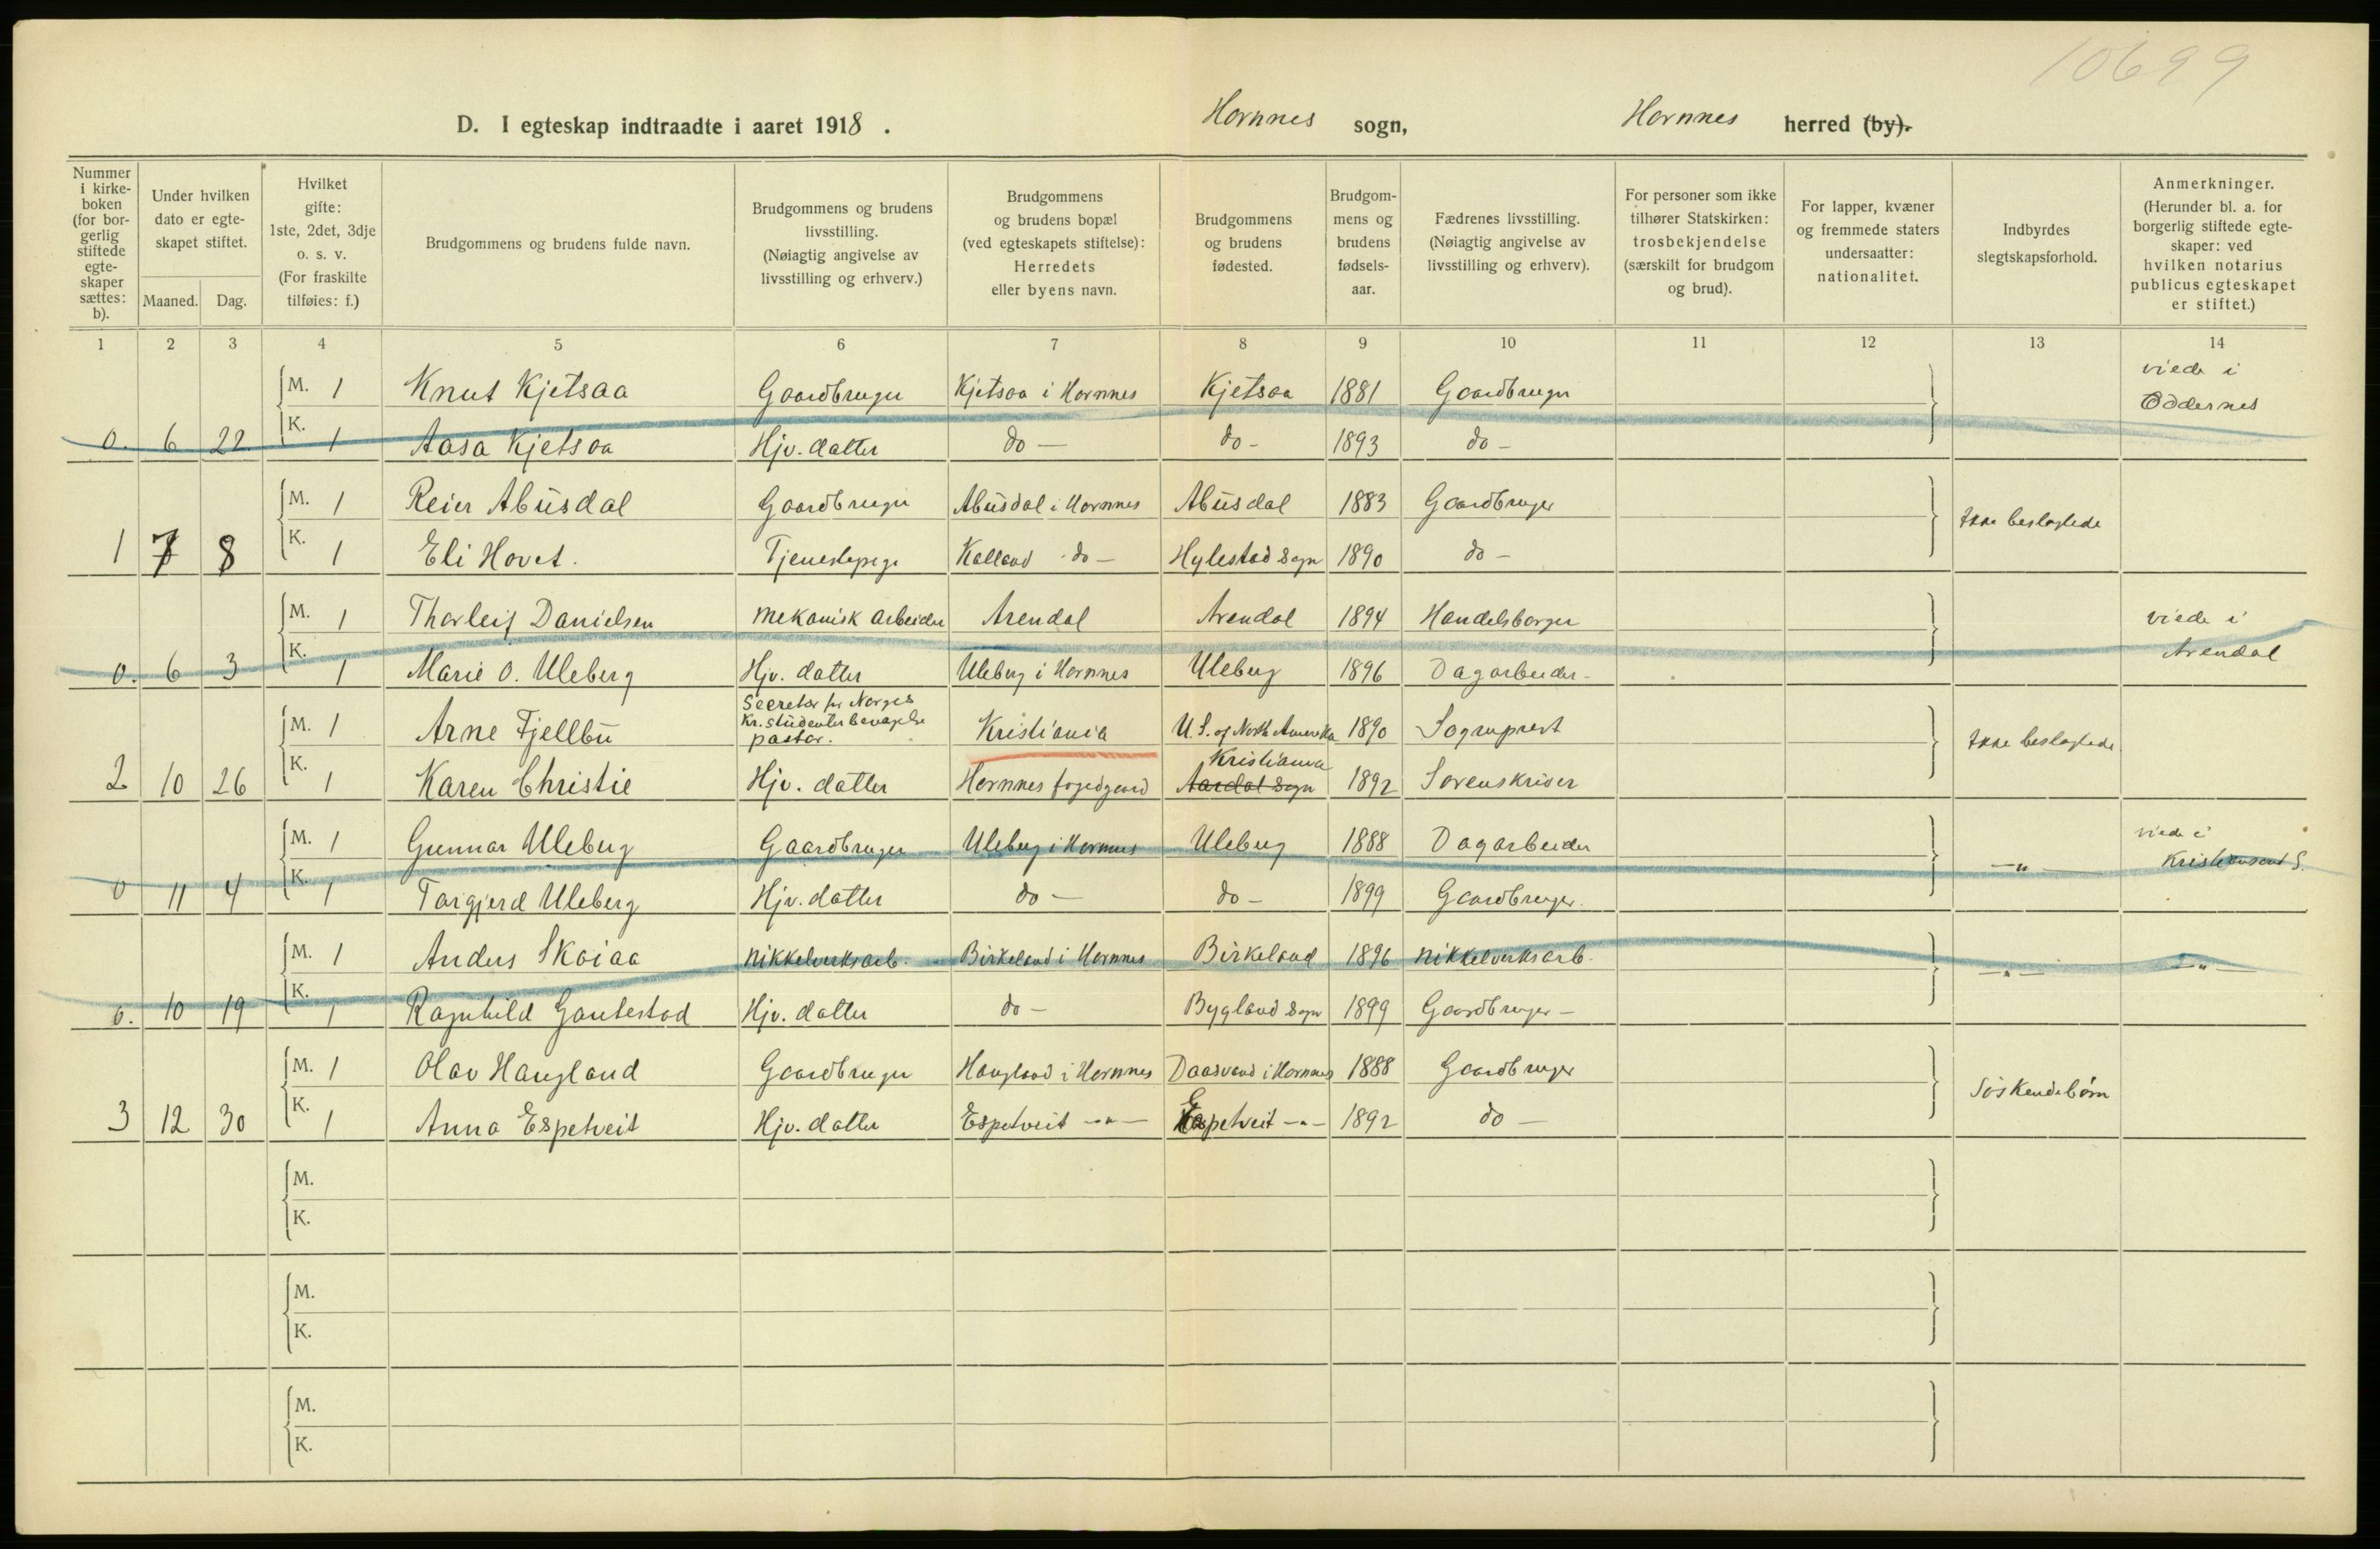 10699
D. I egteskap indtraadte i aaret 1918. Hornnes sogn, Hornnes herred (by).
Nummer i kirkeboken (for borgerlig stiftede egteskaper sættes: b).
Under hvilken dato er egteskapet stiftet.
Maaned. Dag.
Hvilket gifte: 1ste, 2det, 3dje o. s. v. (For fraskilte tilføies: f.)
Brudgommens og brudens fulde navn.
Brudgommens og brudens livsstilling. (Nøiagtig angivelse av livsstilling og erhverv.)
Brudgommens og brudens bopæl (ved egteskapets stiftelse): Herredets eller byens navn.
Brudgommens og brudens fødested.
Brudgommens og brudens fødselsaar.
Fædrenes livsstilling. (Nøiagtig angivelse av livsstilling og erhverv).
For personer som ikke tilhører Statskirken: trosbekjendelse (særskilt for brudgom og brud).
For lapper, kvæner og fremmede staters undersaatter: nationalitet.
Indbyrdes slegtskapsforhold.
Anmerkninger. (Herunder bl. a. for borgerlig stiftede egteskaper: ved hvilken notarius publicus egteskapet er stiftet.)
1 2 3 4 5 6 7 8 9 10 11 12 13 14
M. 1 Knut Kjetsaa Gaardbruger Kjetsaa i Hornnes Kjetsaa 1881 Gaardbruger viede i Oddernes
0. 6 22 K. 1 Aasa Kjetsaa Hjv. datter do — do - 1893 do -
M. 1 Reier Abusdal Gaardbruger Abusdal i Hornnes Abusdal 1883 Gaardbruger Ikke beslægtede
1 7 8 K. 1 Eli Hovet. Tjenestepige Kalland - do — Hylestad sogn 1890 do —
M. 1 Thorleif Danielsen mekanisk arbeider Arendal Arendal 1894 Handelsborger viede i Arendal
0. 6 3 K. 1 Marie O. Uleberg Hjv. datter Uleberg i Hornnes Uleberg 1896 Dagarbeider -
M. 1 Arne Fjellbu Secretær for Norges Kr. studenterbevægelse pastor. Kristiania U. S. of North Amerika 1890 Sogneprest Ikke beslægtede
2 10 26 K. 1 Karen Christie Hjv. datter Hornnes fogedgaard Kristiania Aardal sogn 1892 Sorenskriver
M. 1 Gunnar Uleberg Gaardbruger Uleberg i Hornnes Uleberg 1888 Dagarbeider — " — viede i Kristiansand S.
0 11 4 K. 1 Torgjerd Uleberg Hjv. datter do — do — 1899 Gaardbruger.
M. 1 Anders Skaiaa nikkelverksarb. Birkeland i Hornnes Birkeland 1896 nikkelverksarb. — " — — " —
0. 10 19 K. 1 Ragnhild Gautestad Hjv. datter do — Bygland sogn 1899 Gaardbruger —
M. 1 Olav Haugland Gaardbruger Haugland i Hornnes Daasvand i Hornnes 1888 Gaardbruger Söskendebörn
3 12 30 K. 1 Anna Espetveit Hjv. datter Espetveit — " — Espetveit — " — 1892 do —
M.
K.
M.
K.
M.
K.